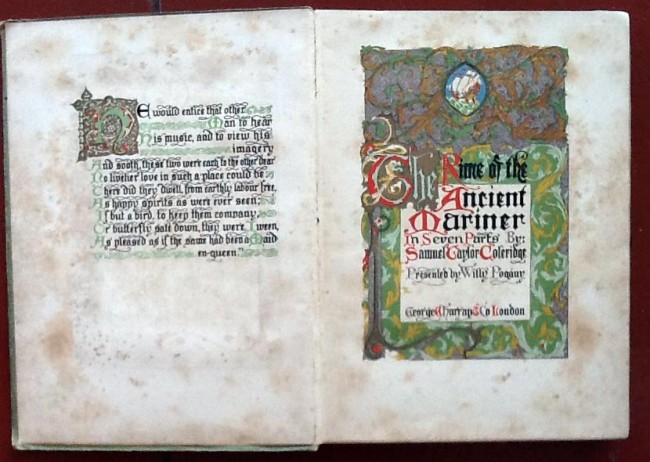 HE would entice that other
Man to hear
His music, and to view his
imagery
And sooth, these two were each to the other dear
No livelier love in such a place could be
There did they dwell, from earthly labour free,
As happy spirits as were ever seen;
If but a bird, to keep them company,
Or butterfly sate down, they were, I ween,
As pleased as if the same had been a Maid
en-queen.
The Rime of the
Ancient
Mariner
In Seven Parts By:
Samuel Taylor Coleridge
Presented by Willy Pogany
George Harrap & Co London